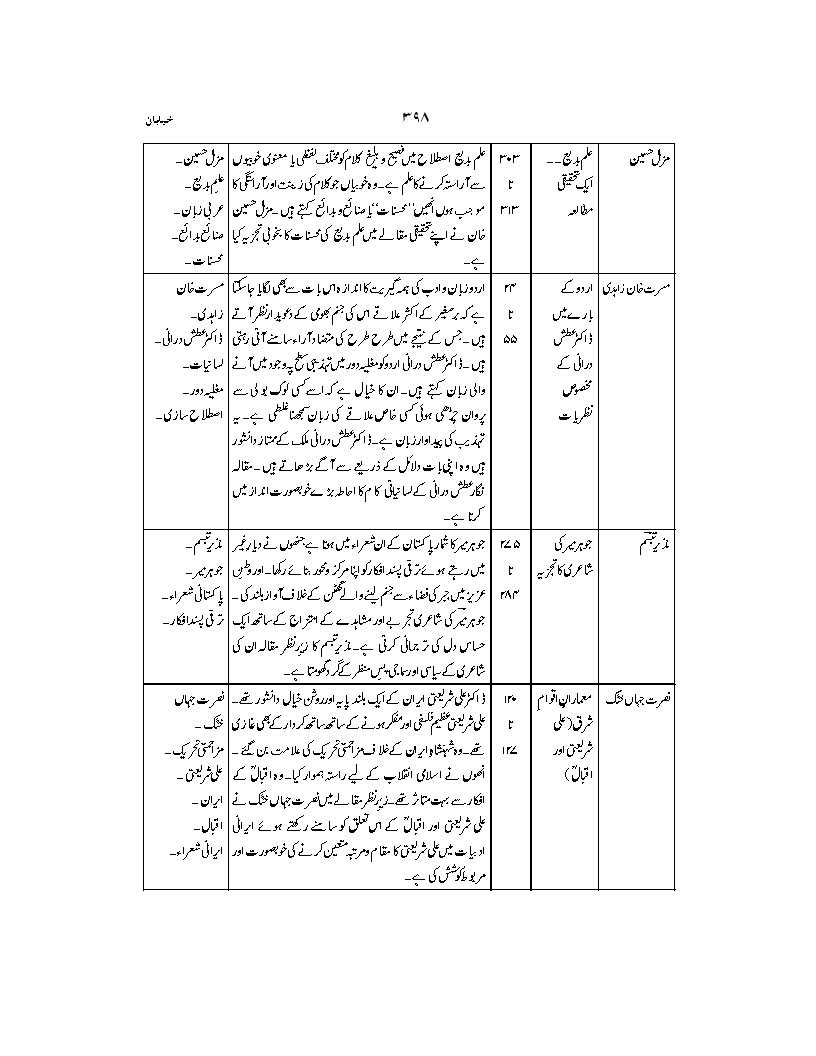 خیابان
۳۹۸
مزمل حسین
علم بدیع۔۔
ایک تحقیقی
مطالعہ
۳۰۳
تا
۳۱۳
علم بدیع اصطلاح میں فصیح و بلیغ کلام کو مختلف لفظی یا معنوی خوبیوں
سے آراستہ کرنے کا علم ہے۔ وہ خوبیاں جو کلام کی زینت اور آرائشگی کا
موجب ہوں انھیں ’’محسنات‘‘ یا صنائع و بدائع کہتے ہیں۔ مزمل حسین
خان نے اپنے تحقیقی مقالے میں علم بدیع کی محسنات کا بخوبی تجزیہ کیا
ہے۔
مزمل حسین۔
علم بدیع۔
عربی زبان۔
صنائع بدائع۔
محسنات۔
مسرت خان زاہدی
اردو کے
بارے میں
ڈاکٹر عطش
درانی کے
مخصوص
نظریات
۲۴
تا
۵۵
اردو زبان و ادب کی ہمہ گیریت کا اندازہ اس بات سے بھی لگایا جا سکتا
ہے کہ برصغیر کے اکثر علاقے اس کی جنم بھومی کے دعویدار نظر آتے
ہیں۔ جس کے نتیجے میں طرح طرح کی متضاد آراء سامنے آتی رہتی
ہیں۔ ڈاکٹر عطش درانی اردو کو مغلیہ دور میں تہذیبی سطح پہ وجود میں آنے
والی زبان کہتے ہیں۔ ان کا خیال ہے کہ اسے کسی لوک بولی سے
پروان چڑھی ہوئی کسی خاص علاقے کی زبان سمجھنا غلطی ہے۔ یہ
تہذیب کی پیداوار زبان ہے۔ ڈاکٹر عطش درانی ملک کے ممتاز دانشور
ہیں وہ اپنی بات دلائل کے ذریعے سے آگے بڑھاتے ہیں۔ مقالہ
نگار عطش درانی کے لسانیاتی کام کا احاطہ بڑے خوبصورت انداز میں
کرتا ہے۔
مسرت خان
زاہدی۔
ڈاکٹر عطش درانی۔
لسانیات۔
مغلیہ دور۔
اصطلاح سازی۔
نذیر تبسّم
جوہر میر کی
شاعری کا تجزیہ
۲۷۵
تا
۲۸۴
جوہر میر کا شمار پاکستان کے ان شعراء میں ہوتا ہے جنھوں نے دیار غیر
میں رہتے ہوئے ترقی پسند افکار کو اپنا مرکز و محور بنائے رکھا۔ اور وطنِ
عزیز میں جبر کی فضاء سے جنم لینے والے گھٹن کے خلاف آواز بلند کی۔
جوہر میر کی شاعری تجربے اور مشاہدے کے امتزاج کے ساتھ ایک
حساس دل کی ترجمانی کرتی ہے۔ نذیر تبسم کا زیرِ نظر مقالہ ان کی
شاعری کے سیاسی اور سماجی پس منظر کے گرد گھومتا ہے۔
نذیر تبسم۔
جوہر میر۔
پاکستانی شعراء۔
ترقی پسند افکار۔
نصرت جہاں خٹک
معمارانِ اقوامِ
شرق (علی
شریعتی اور
اقبالؒ)
۱۲۰
تا
۱۲۷
ڈاکٹر علی شریعتی ایران کے ایک بلند پایہ اور روشن خیال دانشور تھے۔
علی شریعتی عظیم فلسفی اور مفکر ہونے کے ساتھ ساتھ کردار کے بھی غازی
تھے۔ وہ شہنشاہِ ایران کے خلاف مزاحمتی تحریک کی علامت بن گئے۔
انھوں نے اسلامی انقلاب کے لیے راستہ ہموار کیا۔ وہ اقبالؒ کے
افکار سے بہت متاثر تھے۔ زیر نظر مقالے میں نصرت جہاں خٹک نے
علی شریعتی اور اقبالؒ کے اس تعلق کو سامنے رکھتے ہوئے ایرانی
ادبیات میں علی شریعتی کا مقام و مرتبہ متعین کرنے کی خوبصورت اور
مربوط کوشش کی ہے۔
نصرت جہاں
خٹک۔
مزاحمتی تحریک۔
علی شریعتی۔
ایران۔
اقبال۔
ایرانی شعراء۔